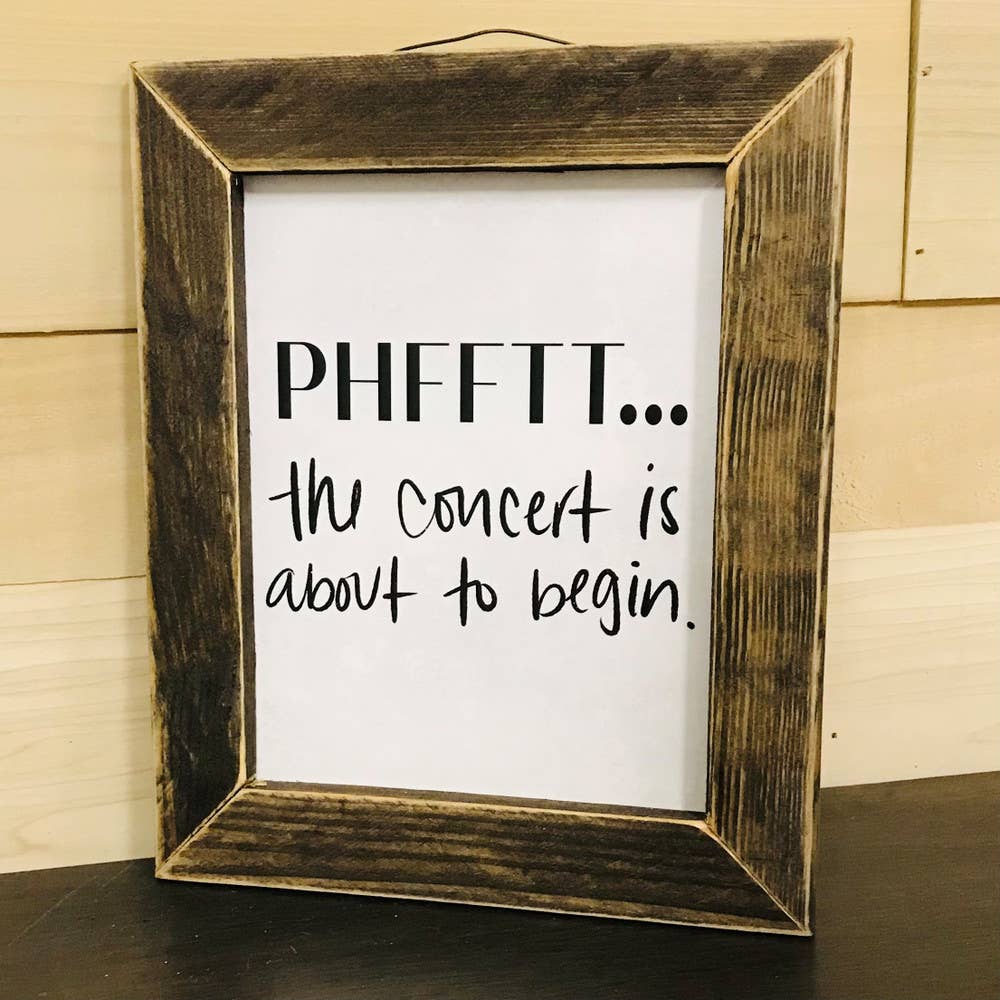 PHFFTT...
the concert is
about to begin.